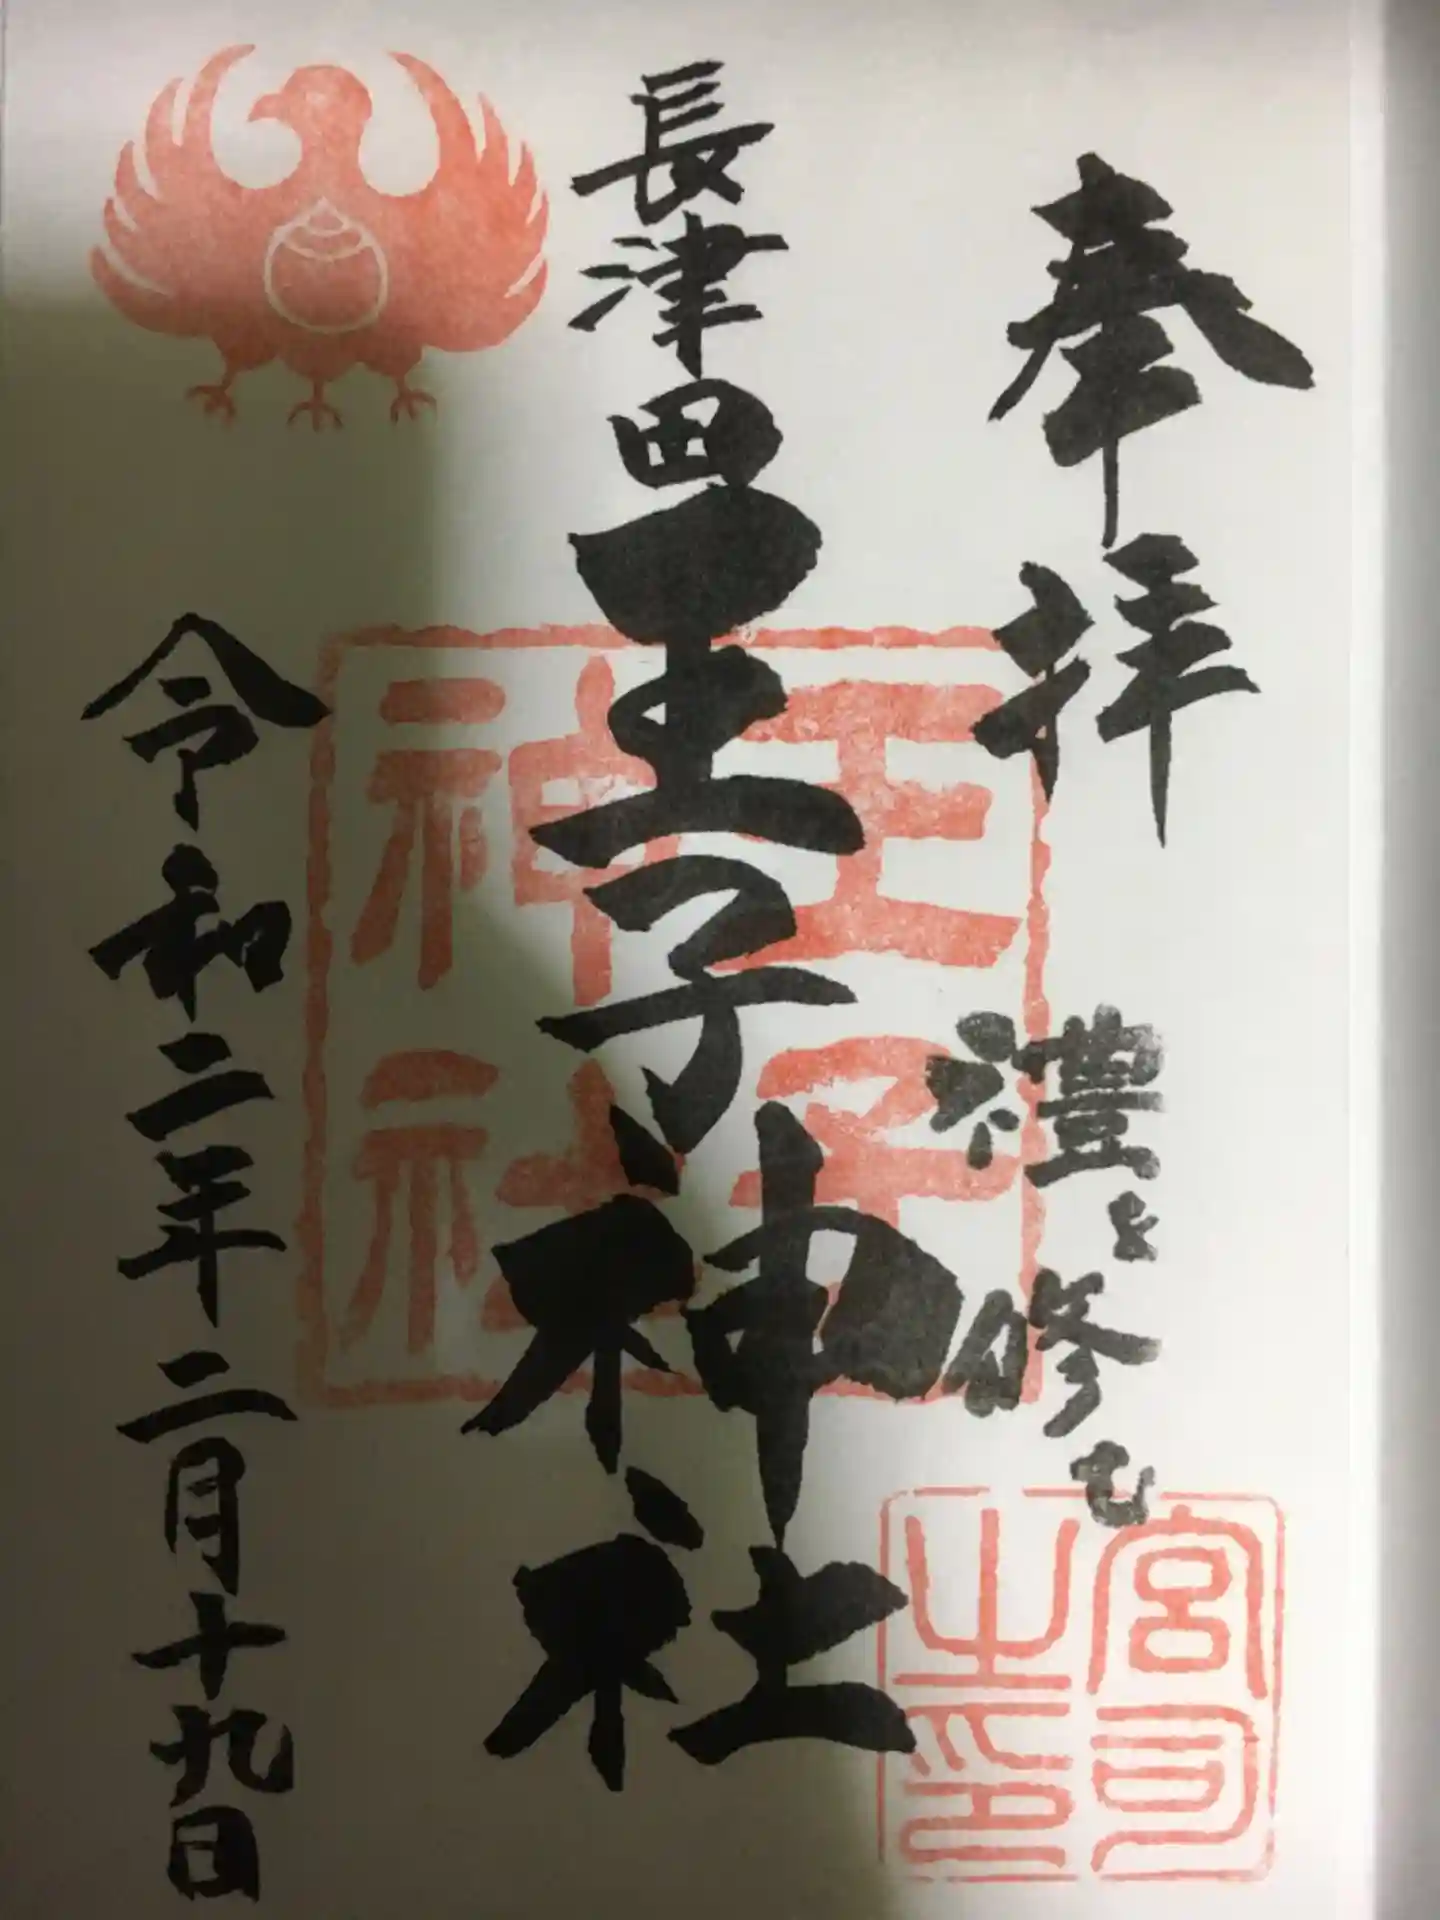 奉拝
禮を修む
長津田王子神社
令和二年二月十九日
王子神社
宮司之印